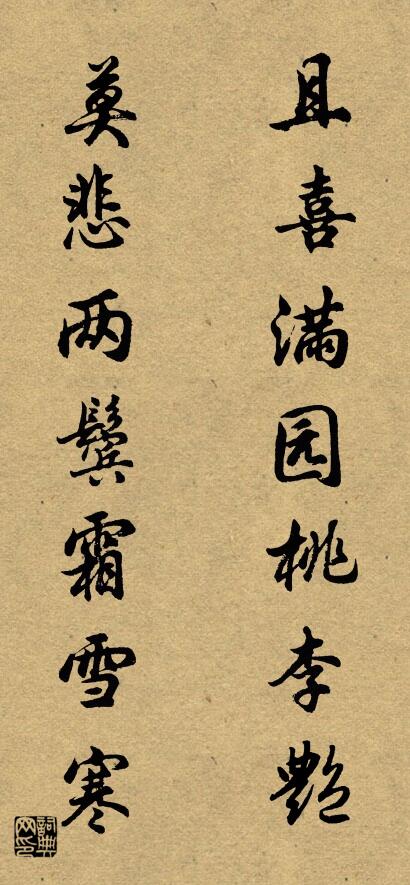 且喜满园桃李艳
莫悲两鬓霜雪寒
词典网印